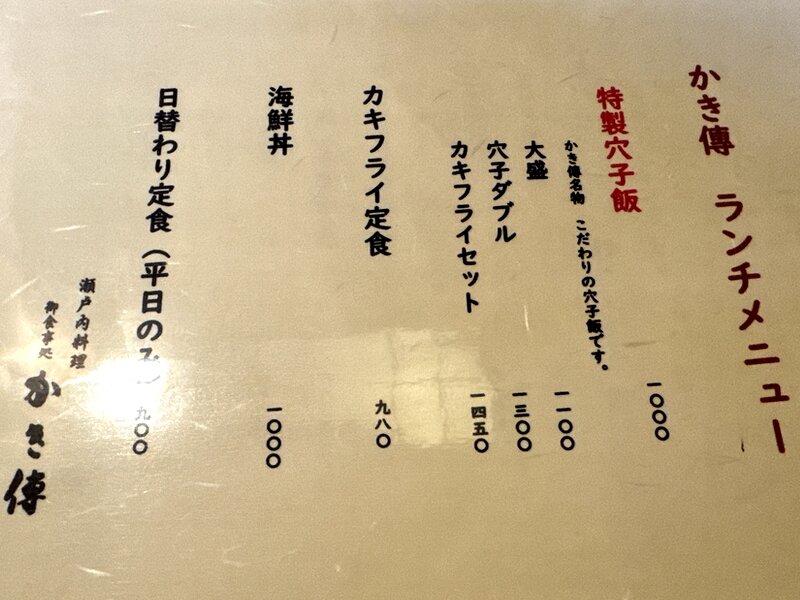 かき傳 ランチメニュー
特製穴子飯 一〇〇〇
かき傳名物 こだわりの穴子飯です。
大盛 一一〇〇
穴子ダブル 一三〇〇
カキフライセット 一四五〇
カキフライ定食 九八〇
海鮮丼 一〇〇〇
日替わり定食（平日のみ） 九〇〇
瀬戸内料理
御食事処
かき傳